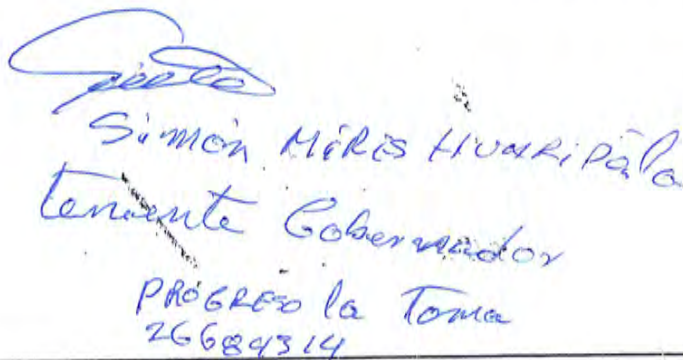 Simón MiRES HUARiPata
teniente Gobernador
PROGRESO la Toma
26684314